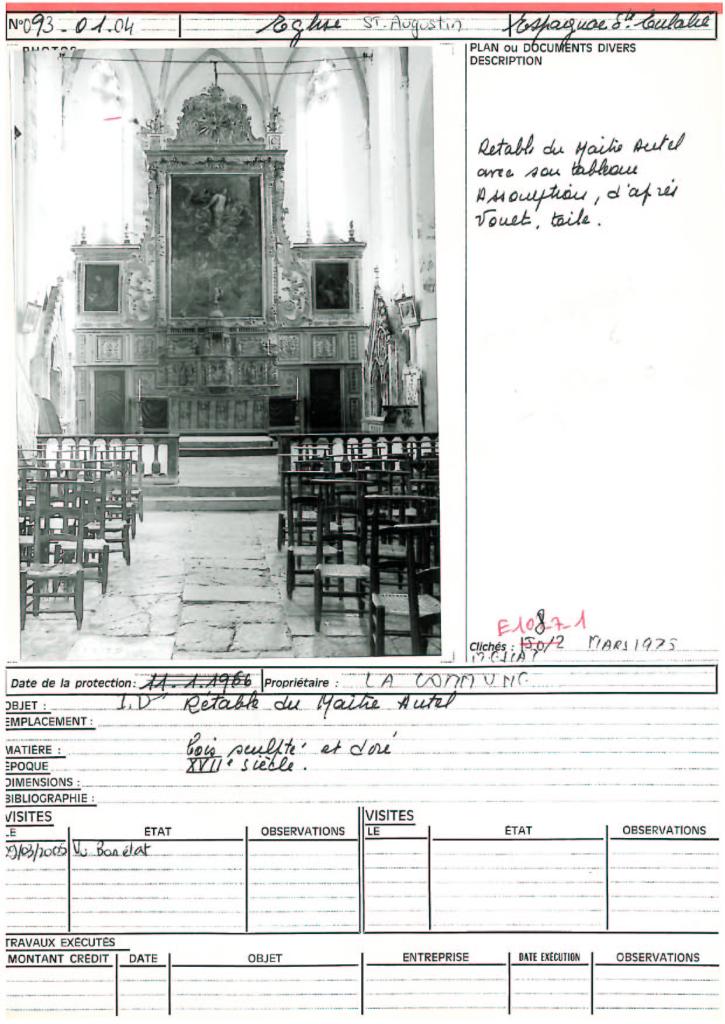 N°093-01.04 Eglise ST. Augustin Espagnac Ste Eulalie
PHOTOS
PLAN ou DOCUMENTS DIVERS
DESCRIPTION
Retable du Maitre Autel
avec son tableau
Assomption, d'après
Vouet, toile.
E108-7-1
Clichés : MARS 1975
Date de la protection: 11.1.1966 Propriétaire : LA COMMUNE
OBJET : Retable du Maitre Autel
EMPLACEMENT :
MATIÈRE : bois sculpté et doré
EPOQUE XVIIe siècle.
DIMENSIONS :
BIBLIOGRAPHIE :
VISITES VISITES
LE ÉTAT OBSERVATIONS LE ÉTAT OBSERVATIONS
/03/2005 Vu Bon état
TRAVAUX EXÉCUTÉS
MONTANT CRÉDIT DATE OBJET ENTREPRISE DATE EXÉCUTION OBSERVATIONS